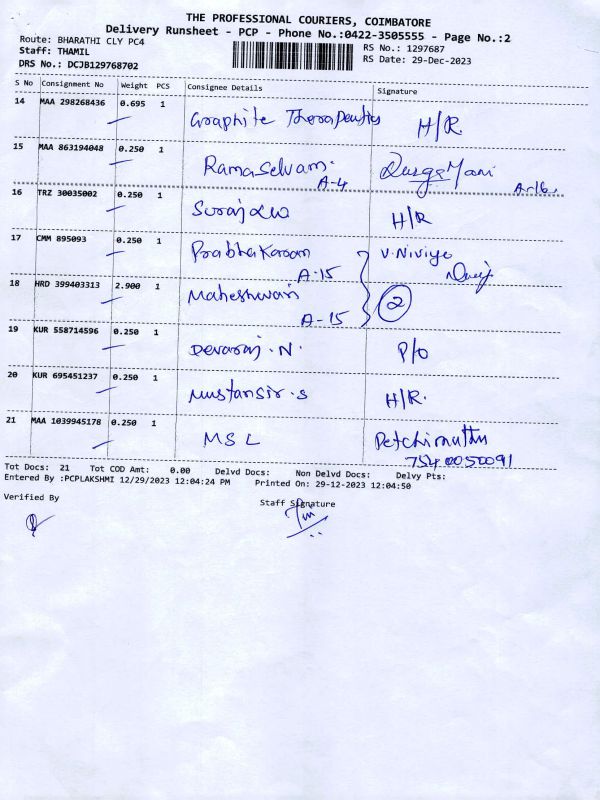 THE PROFESSIONAL COURIERS, COIMBATORE
Delivery Runsheet - PCP - Phone No.:0422-3505555 - Page No.:2
Route: BHARATHI CLY PC4 RS No.: 1297687
Staff: THAMIL RS Date: 29-Dec-2023
DRS No.: DCJB129768702
S No Consignment No Weight PCS Consignee Details Signature
14 MAA 298268436 0.695 1 Graphite Therapeutics H/R
15 MAA 863194048 0.250 1 Ramaselvam. A-4 A-16
16 TRZ 30035002 0.250 1 H/R
17 CMM 895093 0.250 1 Prabhakaran A-15 V.Niviya
18 HRD 399403313 2.900 1 Maheshwari A-15 2
19 KUR 558714596 0.250 1 Devaraj.N. P/O
20 KUR 695451237 0.250 1 Mustansir.S H/R.
21 MAA 1039945178 0.250 1 MSL Petchimuthu
Tot Docs: 21 Tot COD Amt: 0.00 Delvd Docs: Non Delvd Docs: Delvy Pts:
Entered By :PCPLAKSHMI 12/29/2023 12:04:24 PM Printed On: 29-12-2023 12:04:50
Verified By Staff Signature